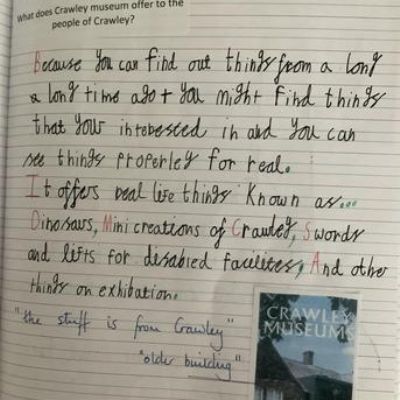 What does Crawley museum offer to the
people of Crawley?
Because you can find out things from a long
a long time ago + you might find things
that your interested in and you can
see things properley for real.
It offers real life things known as...
Dinosaurs, Mini creations of Crawley, Swords
and lifts for disabled facilites, And other
things on exhibation.
"the stuff is from Crawley"
"older building"
CRAWLEY
MUSEUMS